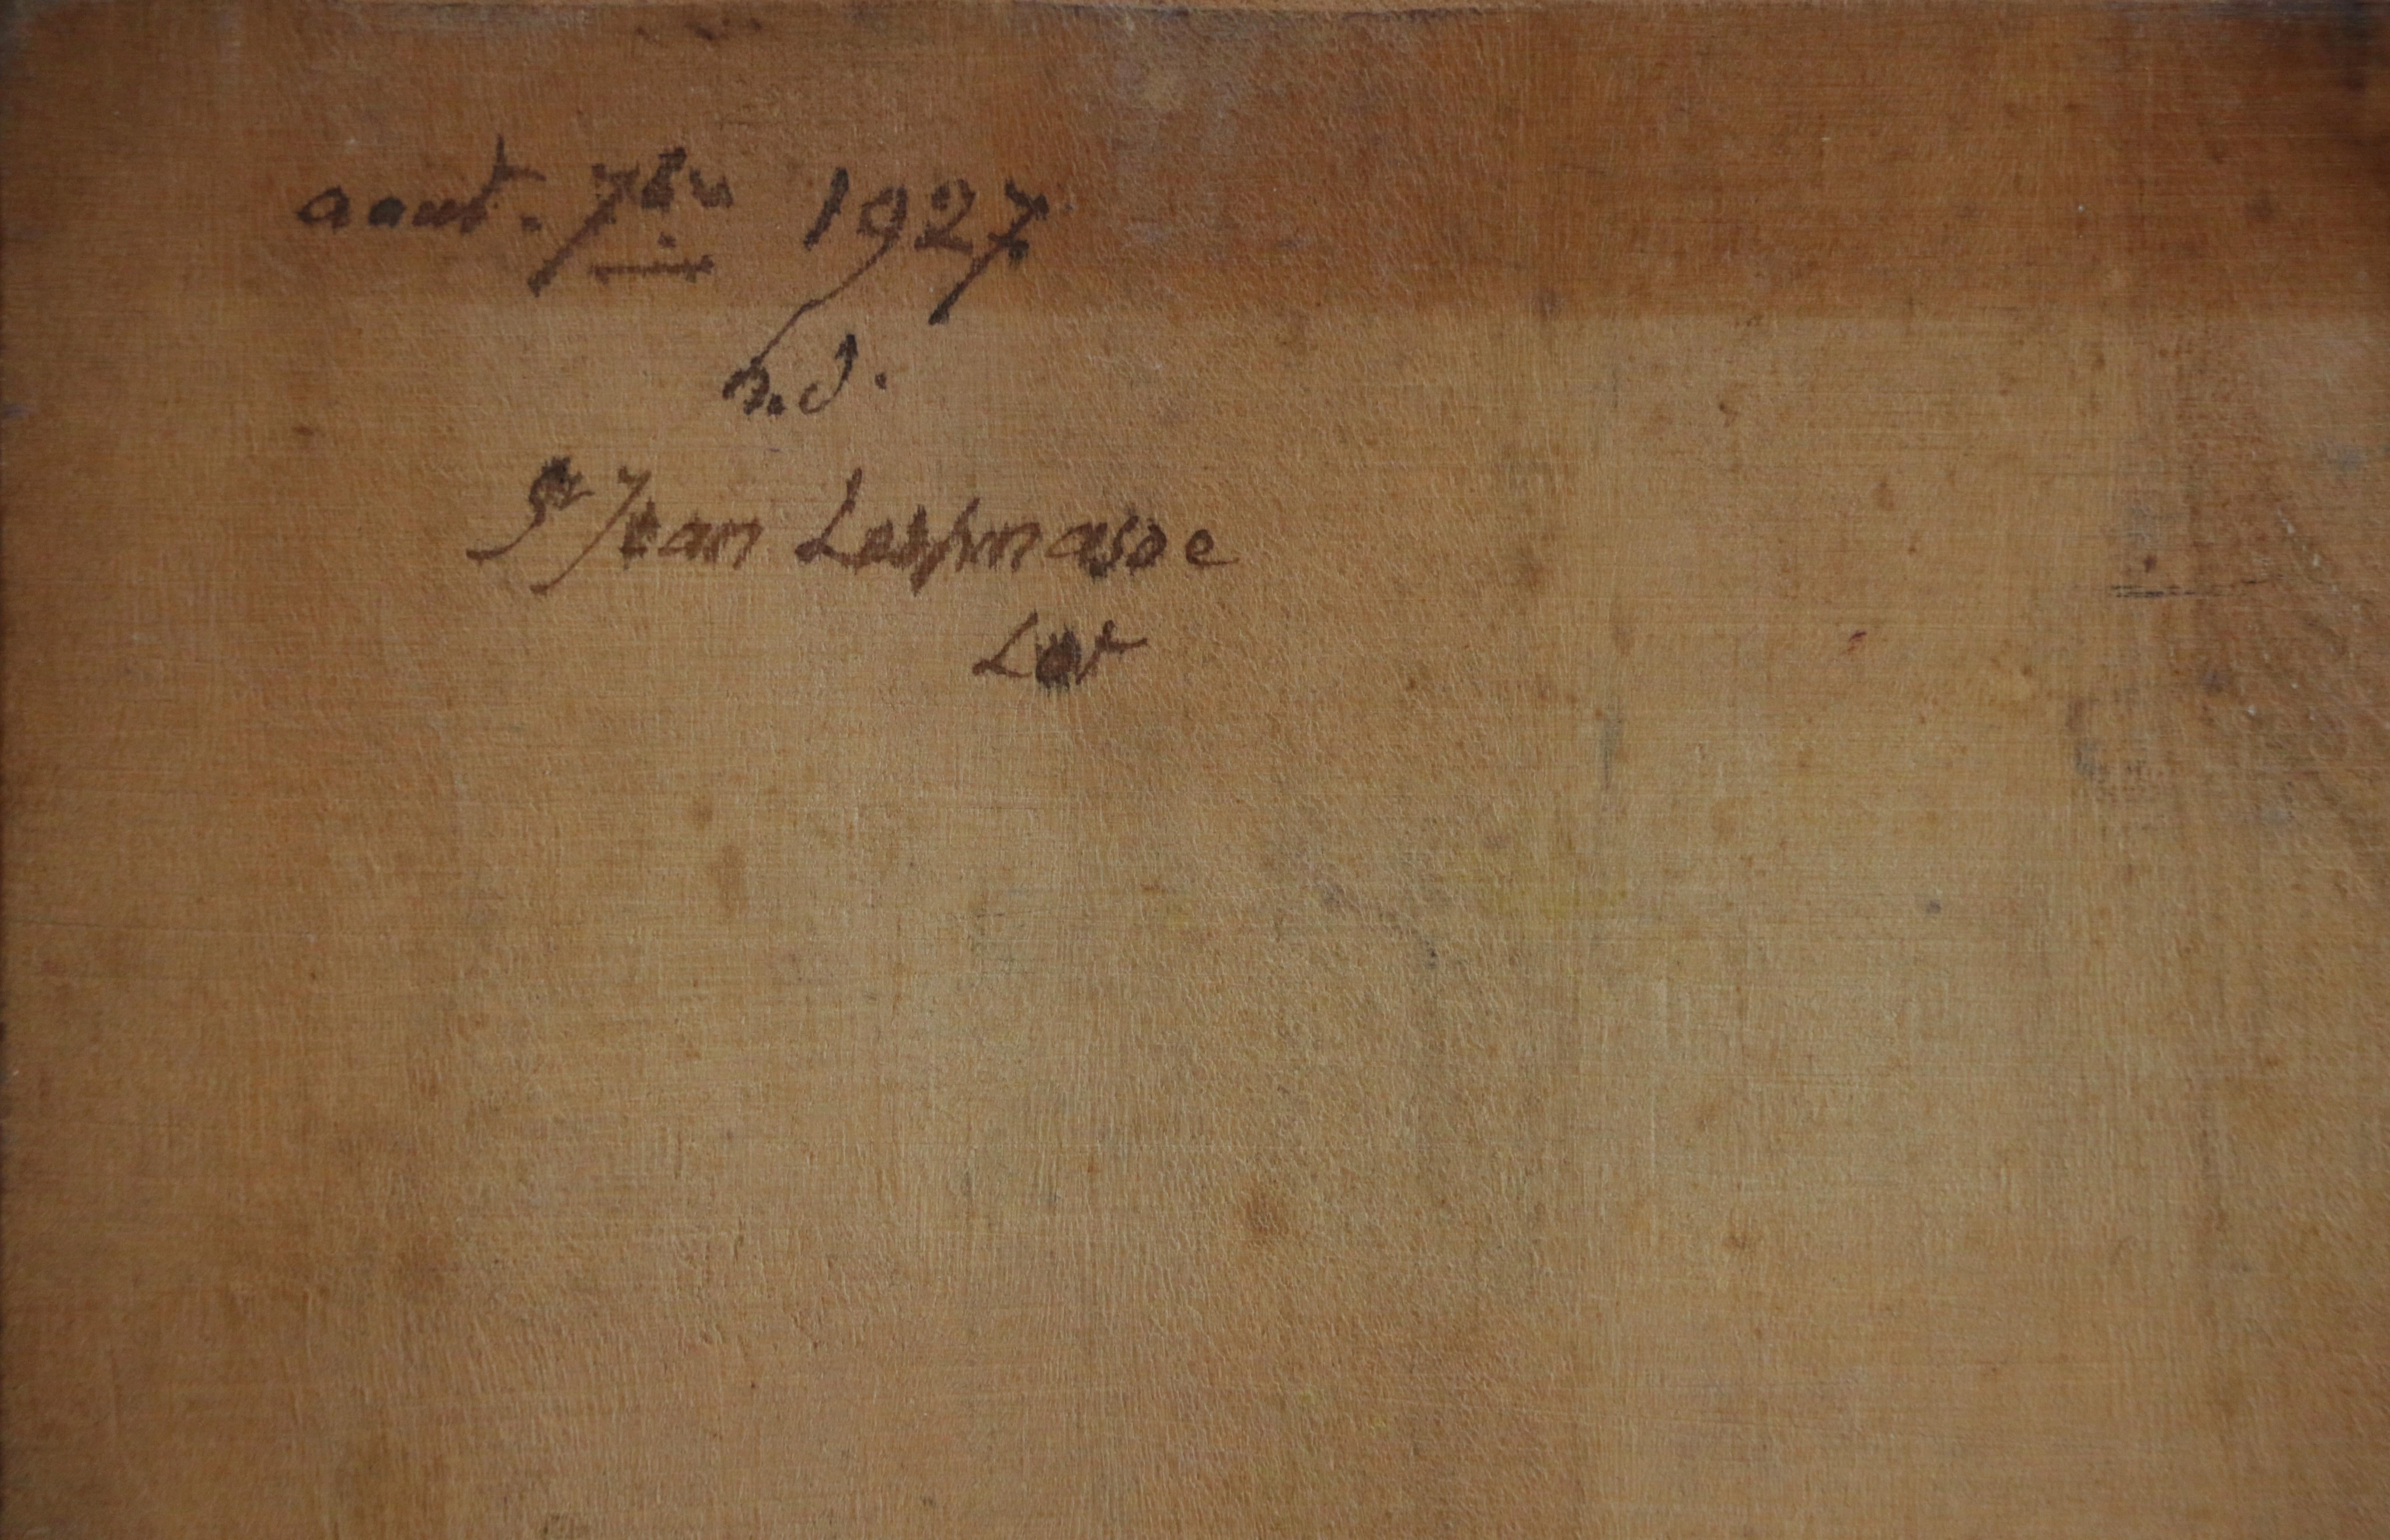 aout. 7bre 1927
St Jean Lespinasse
Lot